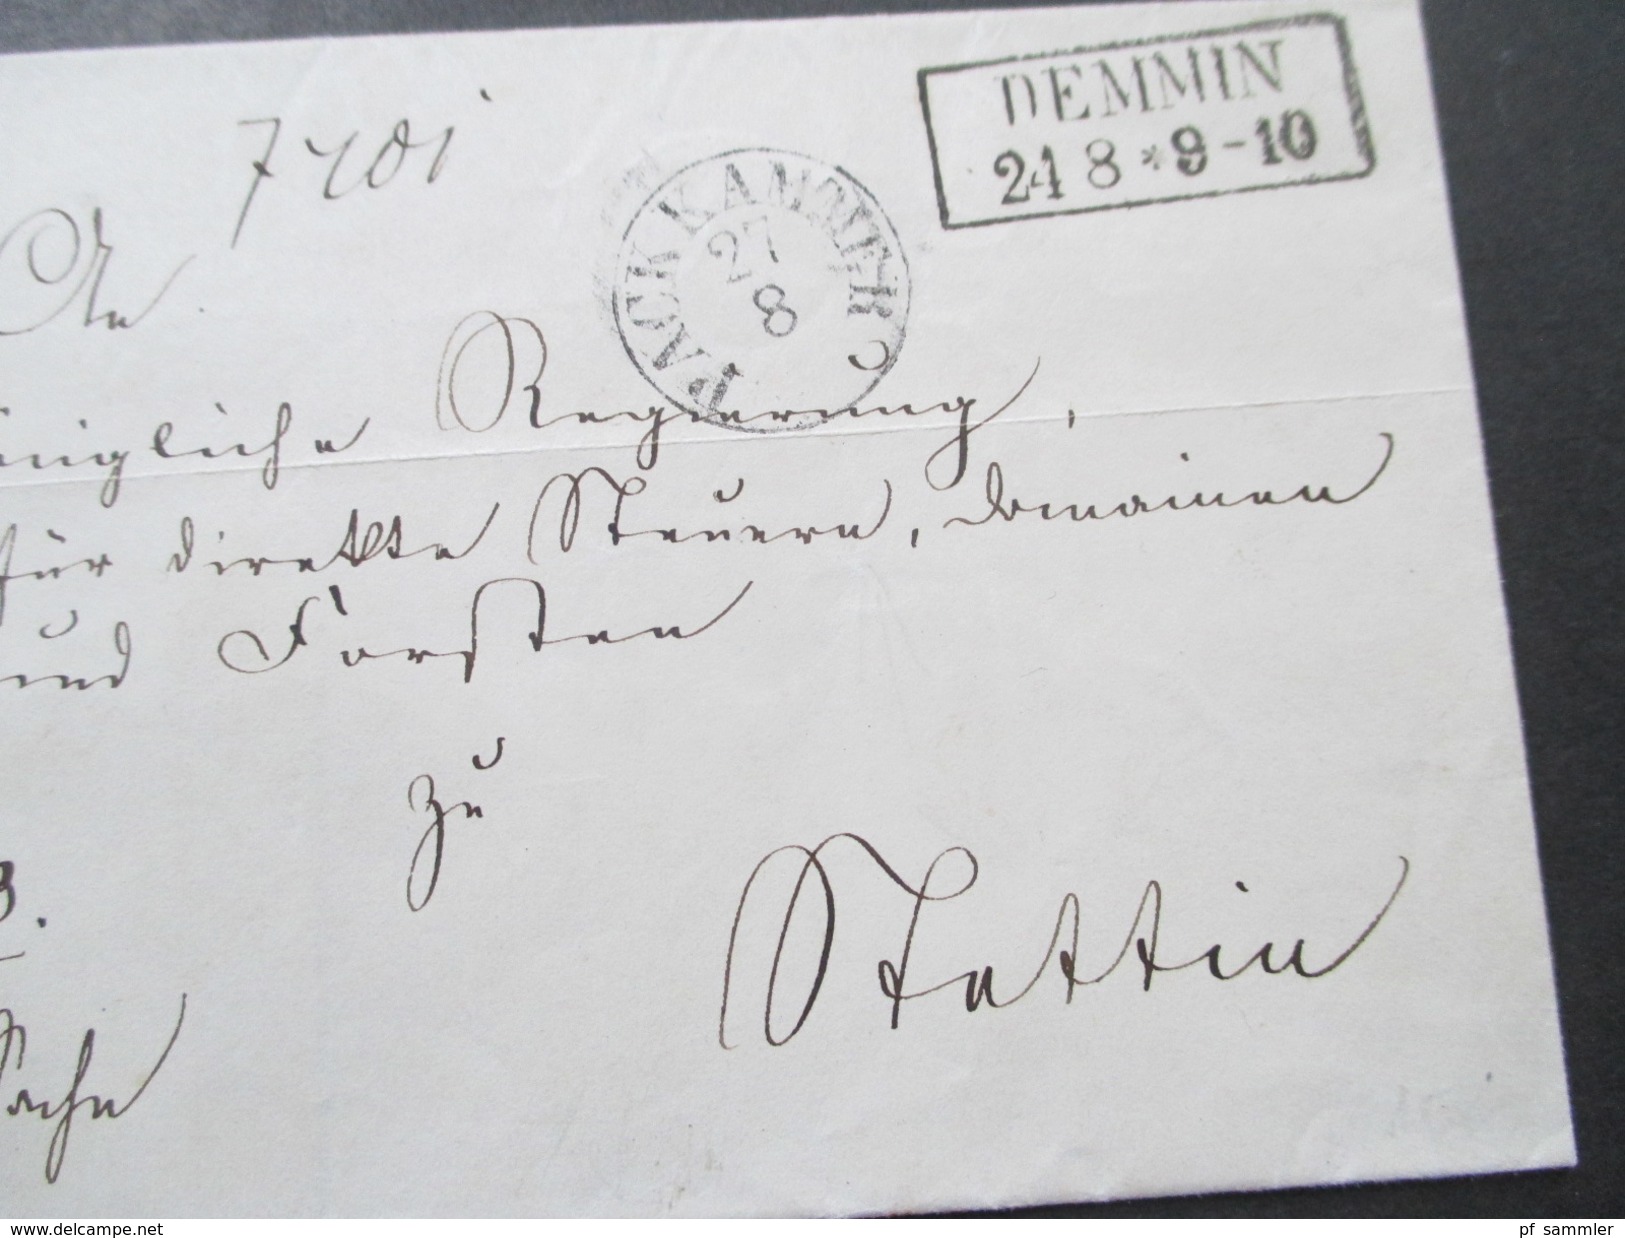 DEMMIN
24 8 * 9-10
PACKKAMMER C
27
8
An
nigliche Regierung,
für direkte Steuern, Domainen
und Forsten
zu
Stettin
3.
Sache
www.delcampe.net
pf_sammler